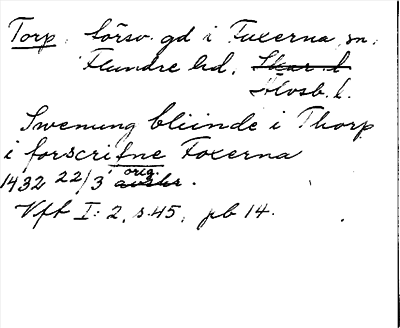 Torp. försv. gd i Fuxerna sn,
Flundre hd. Skar. l.
Älvsb. l.
Swenung bliinde i Thorp
i forscrifne Foxerna
orig.
1432 22/3 avskr.
Vft I: 2, s. 45, pb 14.